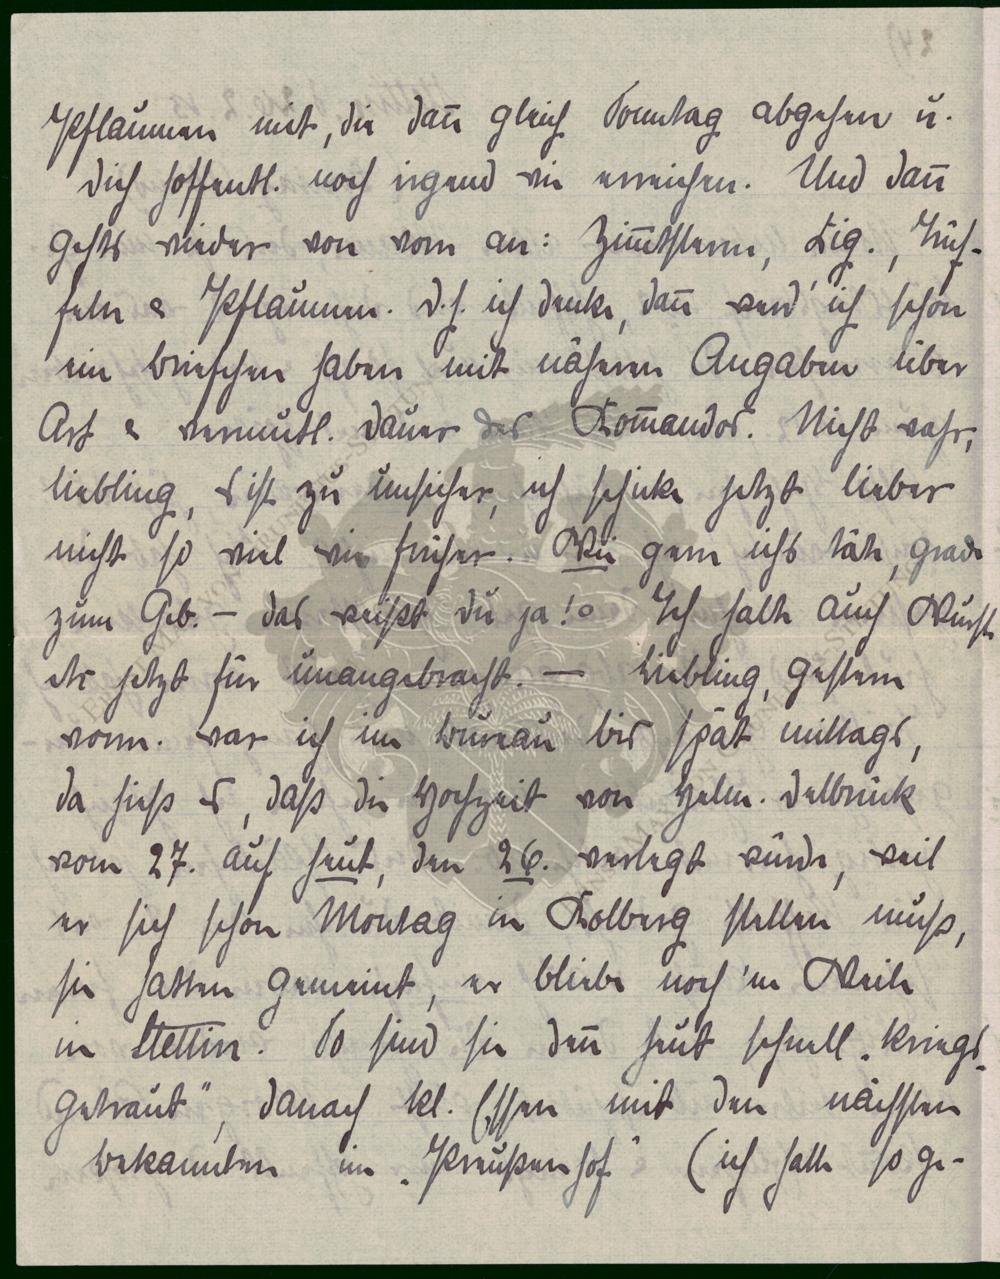 Pflaumen mit, die dan̄ gleich Sonntag abgehen u.
Dich hoffentl. noch irgend wie erreichen. Und dan̄
gehts wieder von vorn an: Zim̄tsterne, Zig., Trüf-
feln & Pflaumen. D.h. ich denke, dan̄ werd' ich schon
ein Briefchen haben mit näheren Angaben über
Art & vermutl. Dauer des Kom̄andos. Nicht wahr,
Liebling, 's ist zu unsicher, ich schicke jetzt lieber
nicht so viel wie früher. Wie gern ichs täte, grade
zum Geb. – das weißt Du ja! Ich halte auch Wurst
etc jetzt für unangebracht. — Liebling, gestern
vorm. war ich im Bureau bis spät mittags,
da hieß es, daß die Hochzeit von Helm. Delbrück
vom 27. auf heut, den 26. verlegt würde, weil
er sich schon Montag in Kolberg stellen muß,
sie hatten gemeint, er bliebe noch 'ne Weile
in Stettin. So sind sie den̄ heut schnell „kriegs-
getraut", danach kl. Essen mit den nächsten
Bekannten im „Preußenhof" (ich hatte so ge-